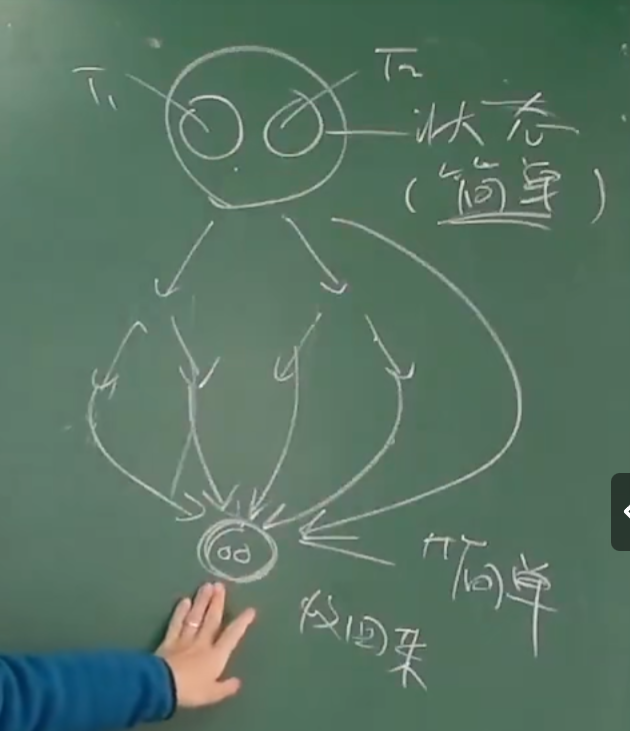 T₁
T₂
状态
(简单)
简单
收回来